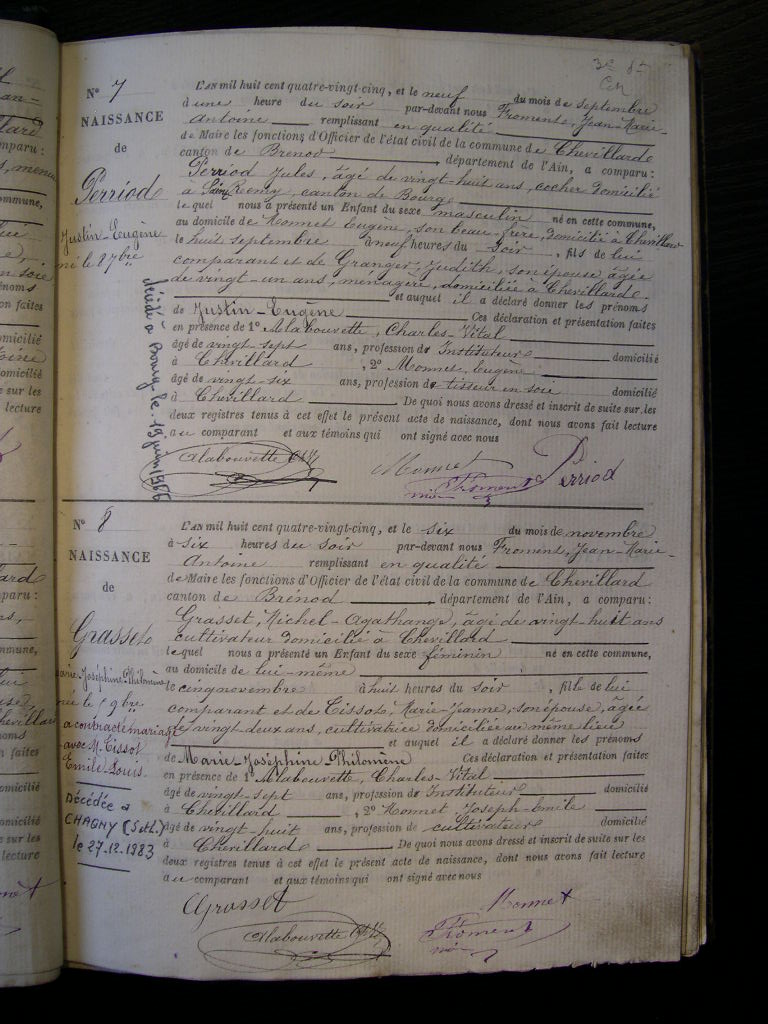 N° 7
NAISSANCE
de
Perriod
Justin-Eugène
né le 8 7bre
décédé à Bourg le 19 juin 1966
L'AN mil huit cent quatre-vingt-cinq, et le neuf du mois de septembre
à une heure du soir par-devant nous Froment, Jean-Marie-
Antoine remplissant en qualité
de Maire les fonctions d'Officier de l'état civil de la commune de Chevillard
canton de Brenod, département de l'Ain, a comparu:
Perriod Jules, âgé de vingt-huit ans, cocher domicilié
à St Remy, canton de Bourg
lequel nous a présenté un Enfant du sexe masculin né en cette commune,
au domicile de Monnet Eugène, son beau-frère, domicilié à Chevillard
le huit septembre à neuf heures du soir, fils de lui
comparant et de Granger, Judith, son épouse, âgée
de vingt-un ans, ménagère, domiciliée à Chevillard.
et auquel il a déclaré donner les prénoms
de Justin-Eugène Ces déclaration et présentation faites
en présence de 1° Alabouvette, Charles-Vital
âgé de vingt sept ans, profession d' Instituteur domicilié
à Chevillard, 2° Monnet, Eugène
âgé de vingt-six ans, profession de tisseur en soie domicilié
à Chevillard De quoi nous avons dressé et inscrit de suite sur les
deux registres tenus à cet effet le présent acte de naissance, dont nous avons fait lecture
au comparant et aux témoins qui ont signé avec nous
Alabouvette Monnet Perriod
Froment
N° 8
NAISSANCE
de
Grasset
Marie-Joséphine Philomène
née le 5 9bre
a contracté mariage
avec M. Tissot
Emile Louis.
Décédée à
CHAGNY (S et L.)
le 27.12.1983
L'AN mil huit cent quatre-vingt-cinq, et le six du mois de novembre
à six heures du soir par-devant nous Froment, Jean-Marie-
Antoine remplissant en qualité
de Maire les fonctions d'Officier de l'état civil de la commune de Chevillard
canton de Brénod, département de l'Ain, a comparu:
Grasset, Michel-Agathange, âgé de vingt-huit ans
cultivateur domicilié à Chevillard
lequel nous a présenté un Enfant du sexe féminin né en cette commune,
au domicile de lui-même
le cinq novembre à huit heures du soir, fille de lui
comparant et de Tissot, Marie-Jeanne, son épouse, âgée
de vingt-deux ans, cultivatrice domiciliée au même lieu
et auquel il a déclaré donner les prénoms
de Marie-Joséphine Philomène Ces déclaration et présentation faites
en présence de 1° Alabouvette, Charles-Vital
âgé de vingt-sept ans, profession d' Instituteur domicilié
à Chevillard, 2° Monnet Joseph-Emile
âgé de vingt-huit ans, profession de cultivateur domicilié
à Chevillard De quoi nous avons dressé et inscrit de suite sur les
deux registres tenus à cet effet le présent acte de naissance, dont nous avons fait lecture
au comparant et aux témoins qui ont signé avec nous
Grasset Monnet
Alabouvette Froment